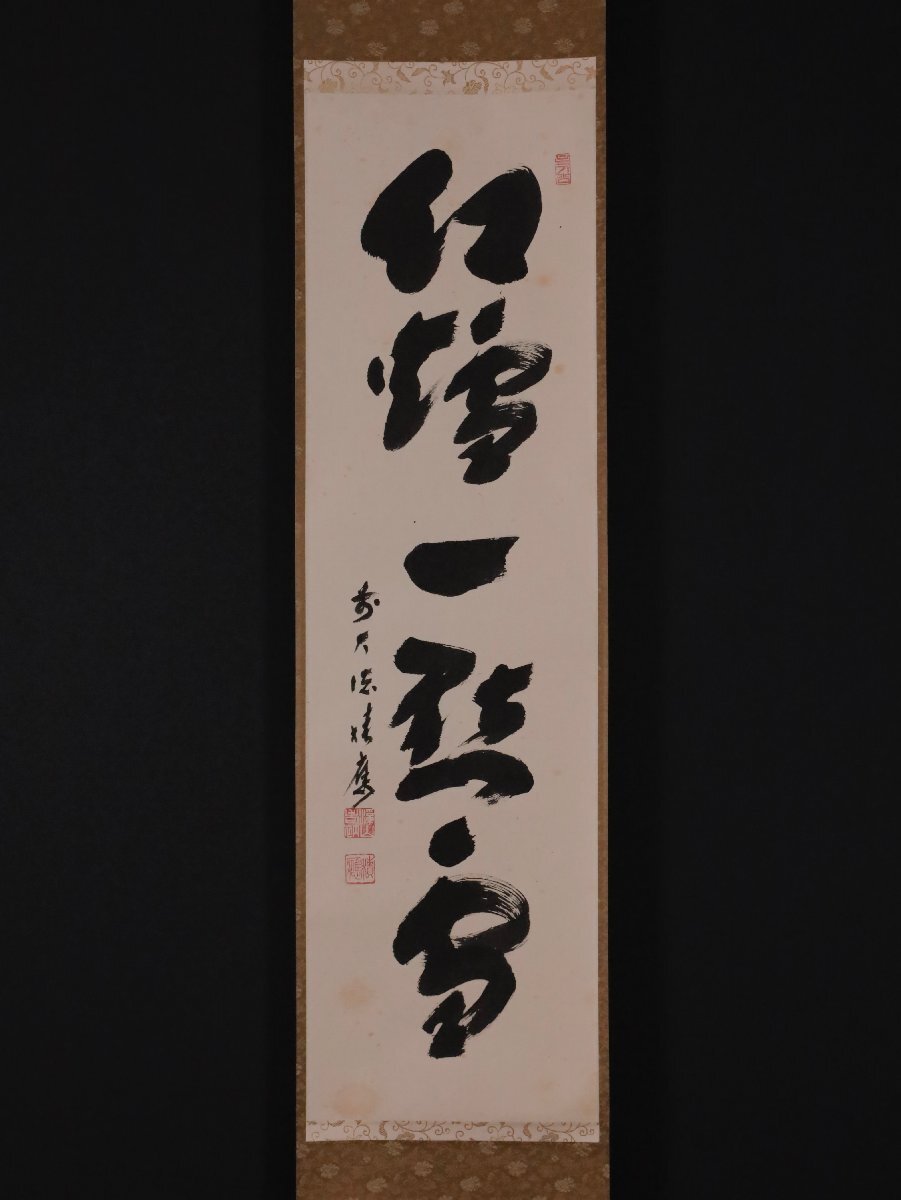 紅爐一點雪
前大德積應